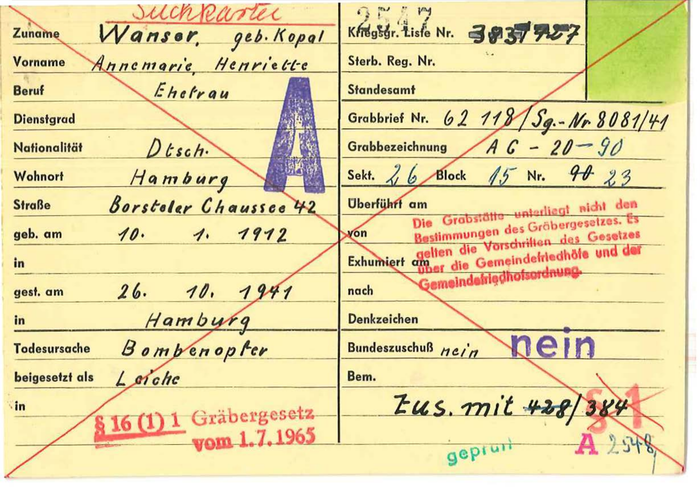 Suchkartei
Zuname Wanser, geb. Kopal
Vorname Annemarie, Henriette
Beruf Ehefrau
Dienstgrad
Nationalität Dtsch.
Wohnort Hamburg
Straße Borsteler Chaussee 42
geb. am 10. 1. 1912
in
gest. am 26. 10. 1941
in Hamburg
Todesursache Bombenopfer
beigesetzt als Leiche
in
§ 16 (1) 1 Gräbergesetz
vom 1.7.1965
A
2547
Kriegsgr. Liste Nr.
Sterb. Reg. Nr.
Standesamt
Grabbrief Nr. 62 118/Sg.-Nr 8081/41
Grabbezeichnung AC-20-90
Sekt. 26 Block 15 Nr. 90 23
Überführt am
von
Exhumiert am
nach
Die Grabstätte unterliegt nicht den
Bestimmungen des Gräbergesetzes. Es
gelten die Vorschriften des Gesetzes
über die Gemeindefriedhöfe und der
Gemeindefriedhofsordnung.
Denkzeichen
Bundeszuschuß nein nein
Bem.
Zus. mit 428/384
§ 1
A 2548
geprüft